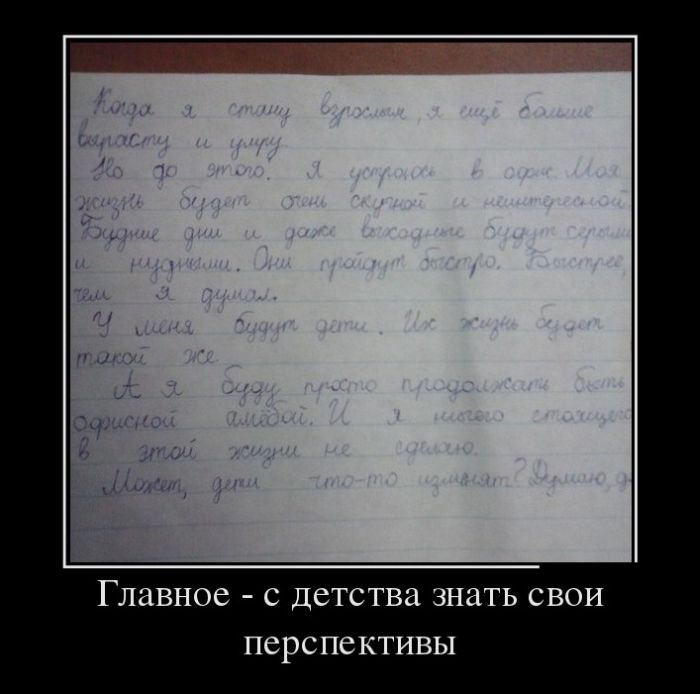 Когда я стану взрослым, я ещё больше
вырасту и умру.
Но до этого. Я устроюсь в офис. Моя
жизнь будет очень скучной и неинтересной.
Будние дни и даже выходные будут серыми
и нудными. Они пройдут быстро. Быстрее,
чем я думал.
У меня будут дети. Их жизнь будет
такой же.
А я буду просто продолжать быть
офисной амёбой. И я ничего стоящего
в этой жизни не сделаю.
Может, дети что-то изменят? Думаю, д
Главное - с детства знать свои
перспективы